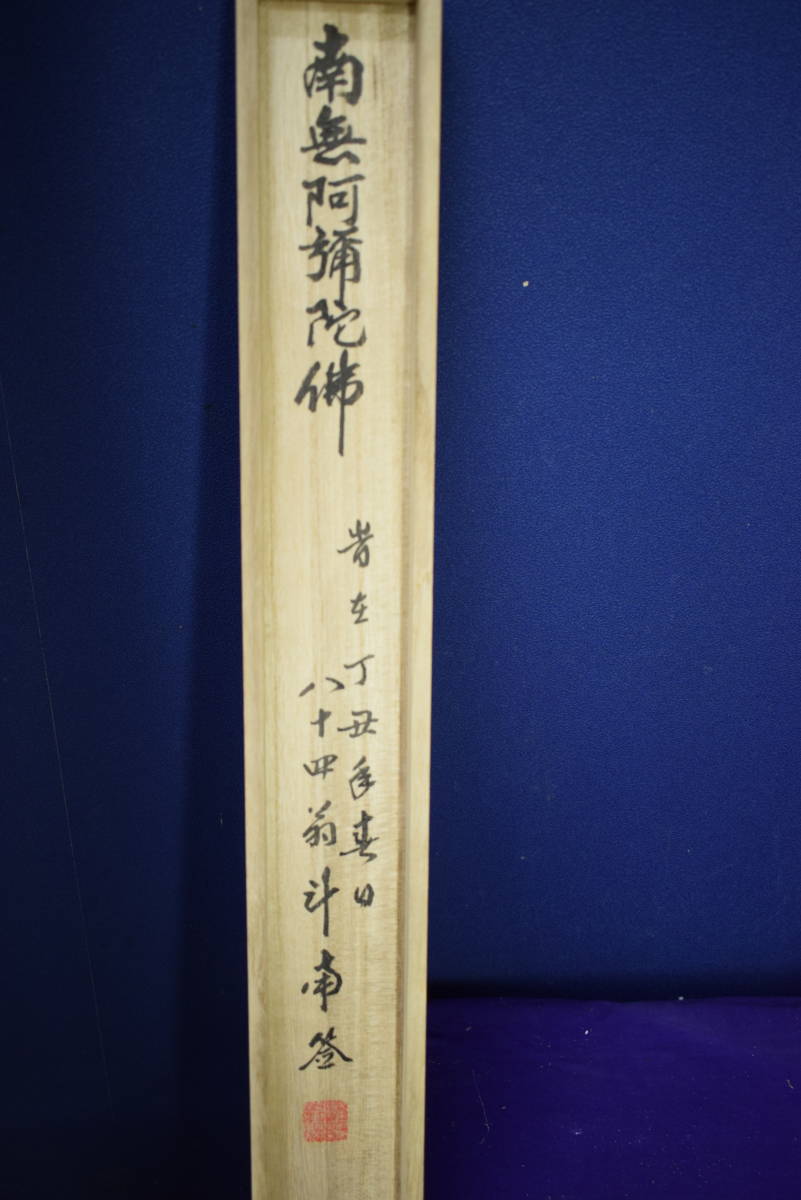 南無阿彌陀佛
昔在丁丑年春日
八十四翁斗南签